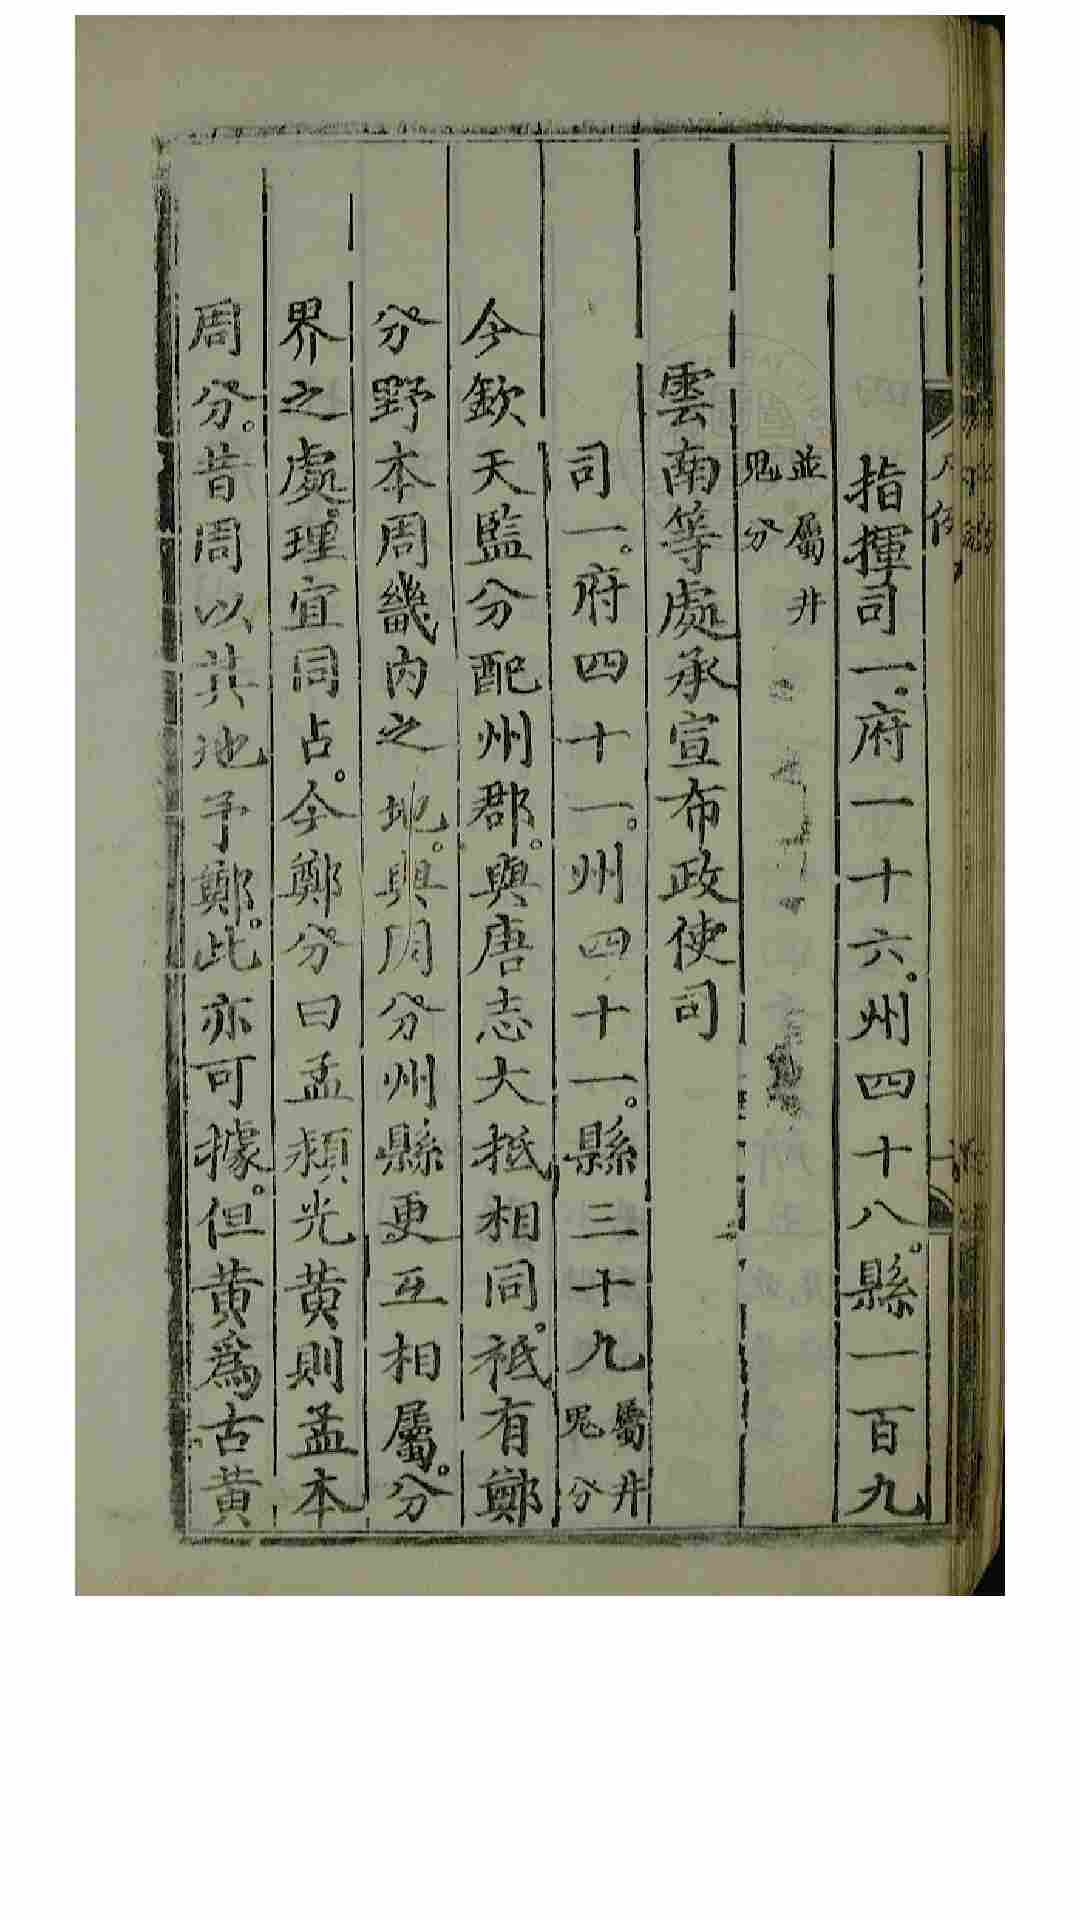 指揮司一。府一十六。州四十八。縣一百九
並屬井
鬼分
雲南等處承宣布政使司
司一。府四十一。州四十一。縣三十九屬井
鬼分
今欽天監分配州郡。與唐志大抵相同。祗有鄭
分野本周畿內之地。與周分州縣更互相屬。分
界之處。理宜同占。今鄭分曰孟頴光黃則孟本
周分。昔周以其地予鄭。此亦可據。但黃爲古黃